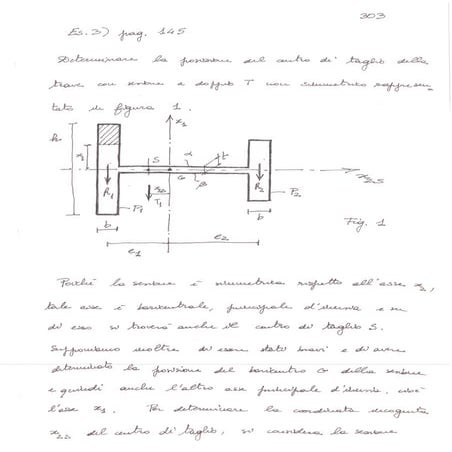 303
Es. 3) pag. 145
Determinare la posizione del centro di taglio della
trave con sezione a doppio T non simmetrica rappresen-
tata in figura 1.
h
x₁
x₂
S
α
t
G
β
R₁
T₁
R₂
P₁
P₂
b
b
e₁
e₂
Fig. 1
Poiché la sezione è simmetrica rispetto all'asse x₂,
tale asse è baricentrale, principale d'inerzia e su
di esso si troverà anche il centro di taglio S.
Supponiamo inoltre di essere stati bravi e di avere
determinato la posizione del baricentro G della sezione
e quindi anche l'altro asse principale d'inerzia, cioè
l'asse x₁. Per determinare la coordinata incognita
del centro di taglio, si considera la sezione